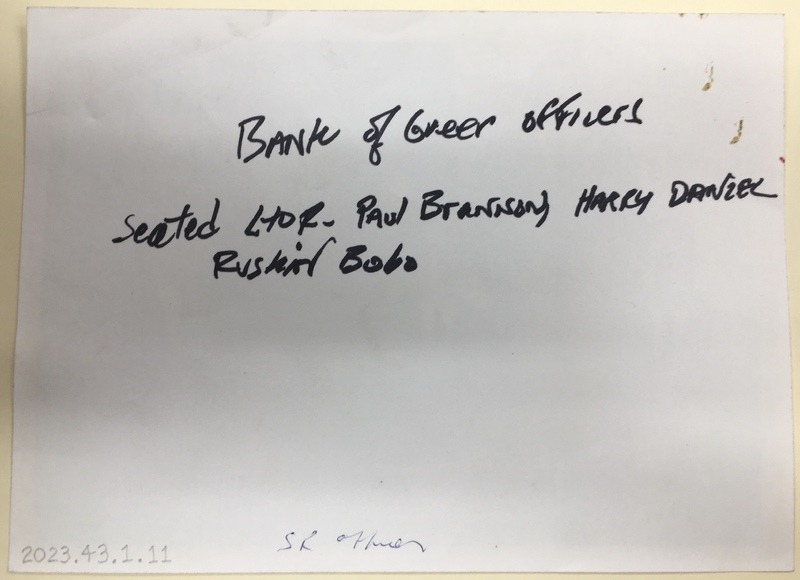 BANK of Greer officers
Seated L to R- PAUL Brannon, HARRY DANIEL
Ruskin Bobo
SR officer
2023.43.1.11